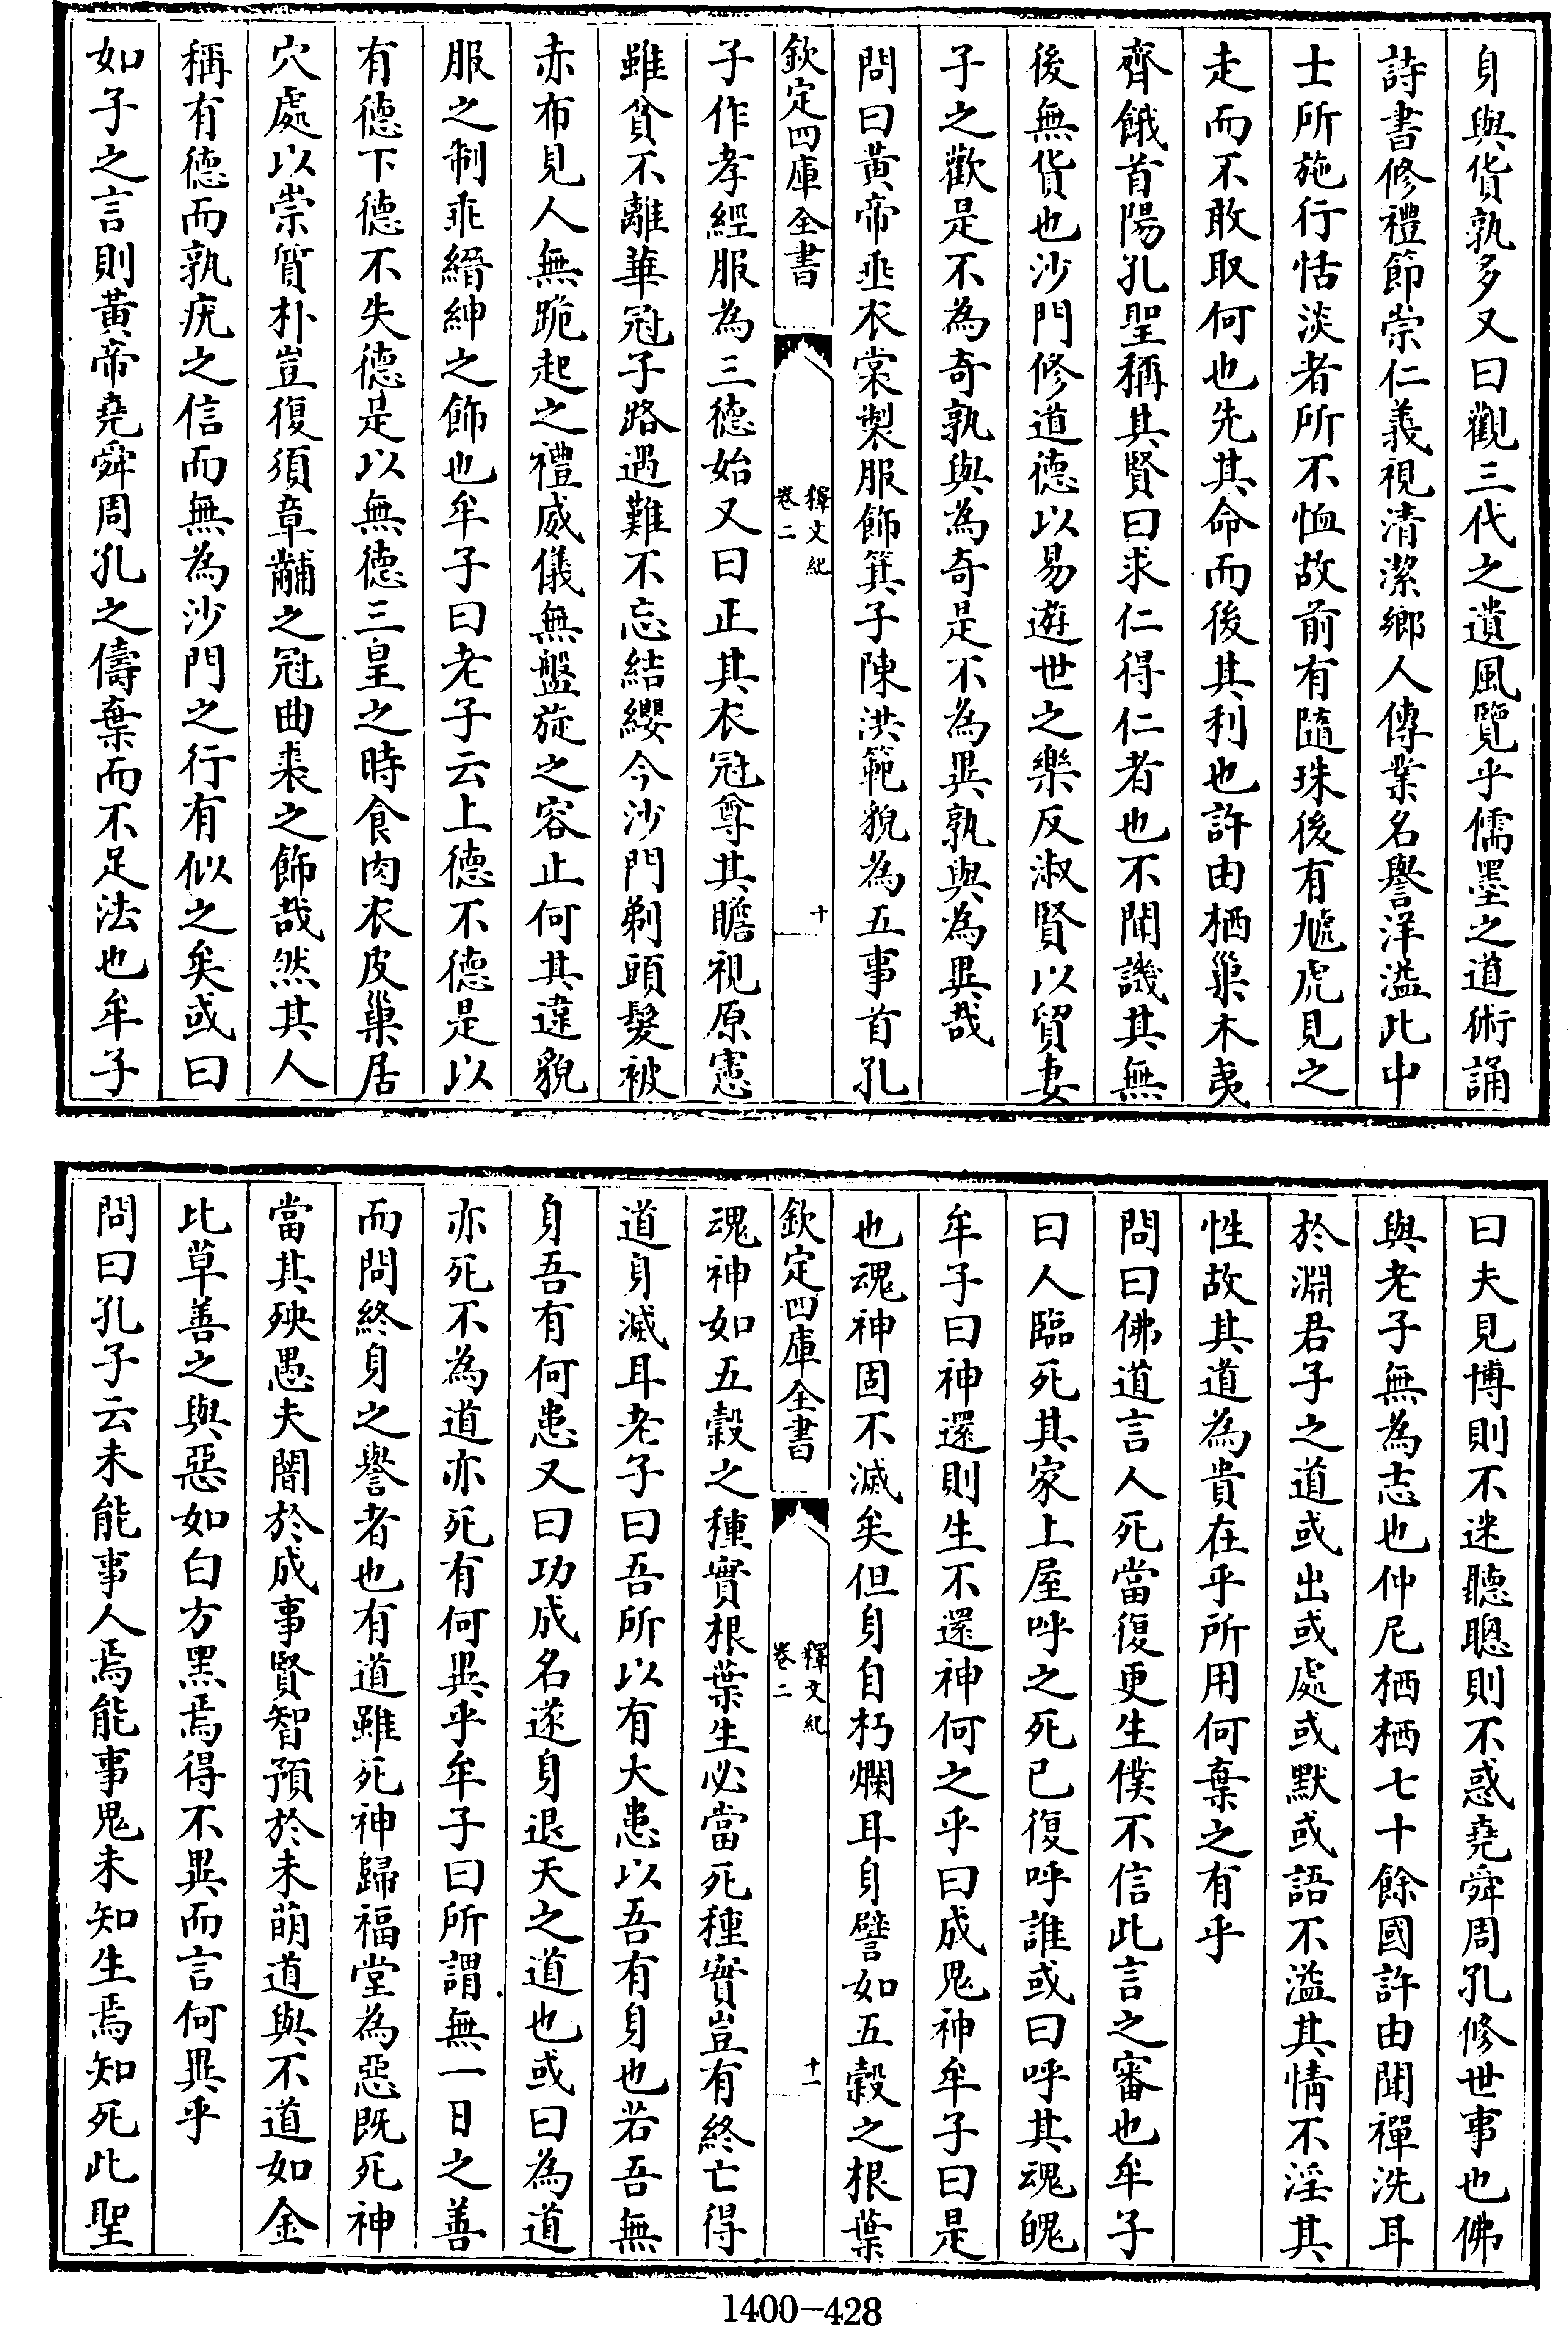 身與貨孰多又曰觀三代之遺風覽乎儒墨之道術誦
詩書修禮節崇仁義視清潔鄉人傳業名譽洋溢此中
士所施行恬淡者所不恤故前有隨珠後有虓虎見之
走而不敢取何也先其命而後其利也許由栖巢木夷
齊餓首陽孔聖稱其賢曰求仁得仁者也不聞譏其無
後無貨也沙門修道德以易遊世之樂反淑賢以貿妻
子之歡是不為奇孰與為奇是不為異孰與為異哉
問曰黄帝垂衣裳製服飾箕子陳洪範貌為五事首孔
欽定四庫全書
釋文紀
卷二
十
子作孝經服為三德始又曰正其衣冠尊其瞻視原憲
雖貧不離華冠子路遇難不忘結纓今沙門剃頭髮被
赤布見人無跪起之禮威儀無盤旋之容止何其違貌
服之制乖縉紳之飾也牟子曰老子云上德不德是以
有德下德不失德是以無德三皇之時食肉衣皮巢居
穴處以崇質朴豈復須章黼之冠曲裘之飾哉然其人
稱有德而孰疣之信而無為沙門之行有似之矣或曰
如子之言則黄帝堯舜周孔之儔棄而不足法也牟子
曰夫見博則不迷聽聰則不惑堯舜周孔修世事也佛
與老子無為志也仲尼栖栖七十餘國許由聞禪洗耳
於淵君子之道或出或處或默或語不溢其情不淫其
性故其道為貴在乎所用何棄之有乎
問曰佛道言人死當復更生僕不信此言之審也牟子
曰人臨死其家上屋呼之死已復呼誰或曰呼其魂魄
牟子曰神還則生不還神何之乎曰成鬼神牟子曰是
也魂神固不滅矣但身自朽爛耳身譬如五穀之根葉
欽定四庫全書
釋文紀
卷二
十一
魂神如五穀之種實根葉生必當死種實豈有終亡得
道身滅耳老子曰吾所以有大患以吾有身也若吾無
身吾有何患又曰功成名遂身退天之道也或曰為道
亦死不為道亦死有何異乎牟子曰所謂無一日之善
而問終身之譽者也有道雖死神歸福堂為惡既死神
當其殃愚夫闇於成事賢智預於未萌道與不道如金
比草善之與惡如白方黑焉得不異而言何異乎
問曰孔子云未能事人焉能事鬼未知生焉知死此聖
1400-428